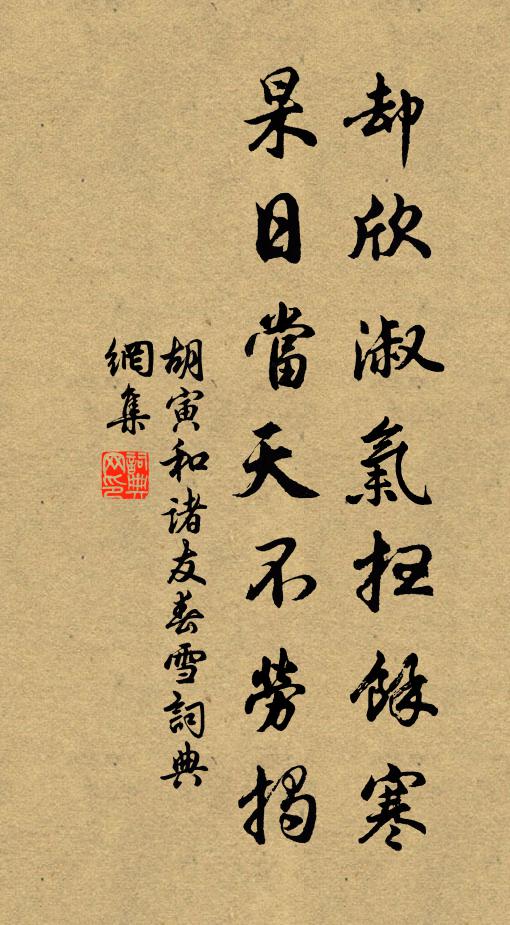 却欣淑氣扭餘寒
杲日當天不勞揭
胡寅和诸友春雪詞典
網集
詞典网印